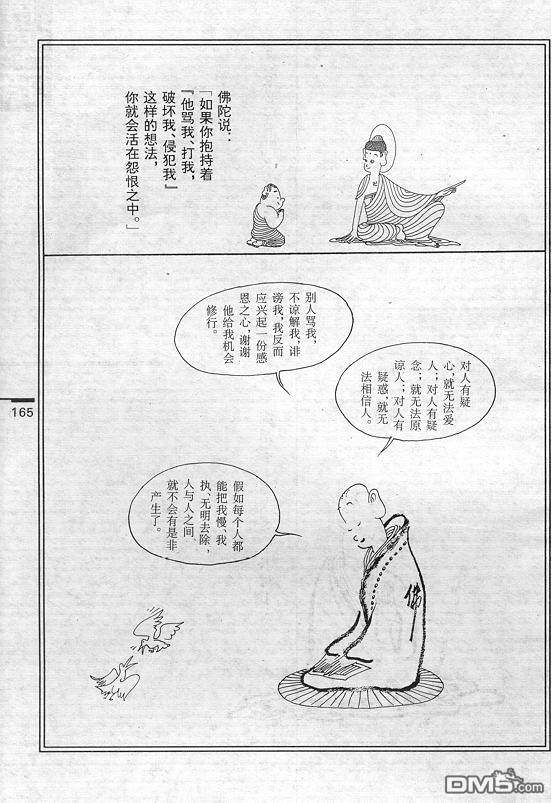 佛陀说：
「如果你抱持着
『他骂我、打我，
破坏我、侵犯我』
这样的想法，
你就会活在怨恨之中。」
别人骂我，
不谅解我，诽
谤我，我反而
应兴起一份感
恩之心，谢谢
他给我机会
修行。
对人有疑
心，就无法爱
人；对人有疑
念；就无法原
谅人；对人有
疑惑，就无
法相信人。
假如每个人都
能把我慢、我
执、无明去除，
人与人之间、
就不会有是非
产生了。
佛
165
DM5.com